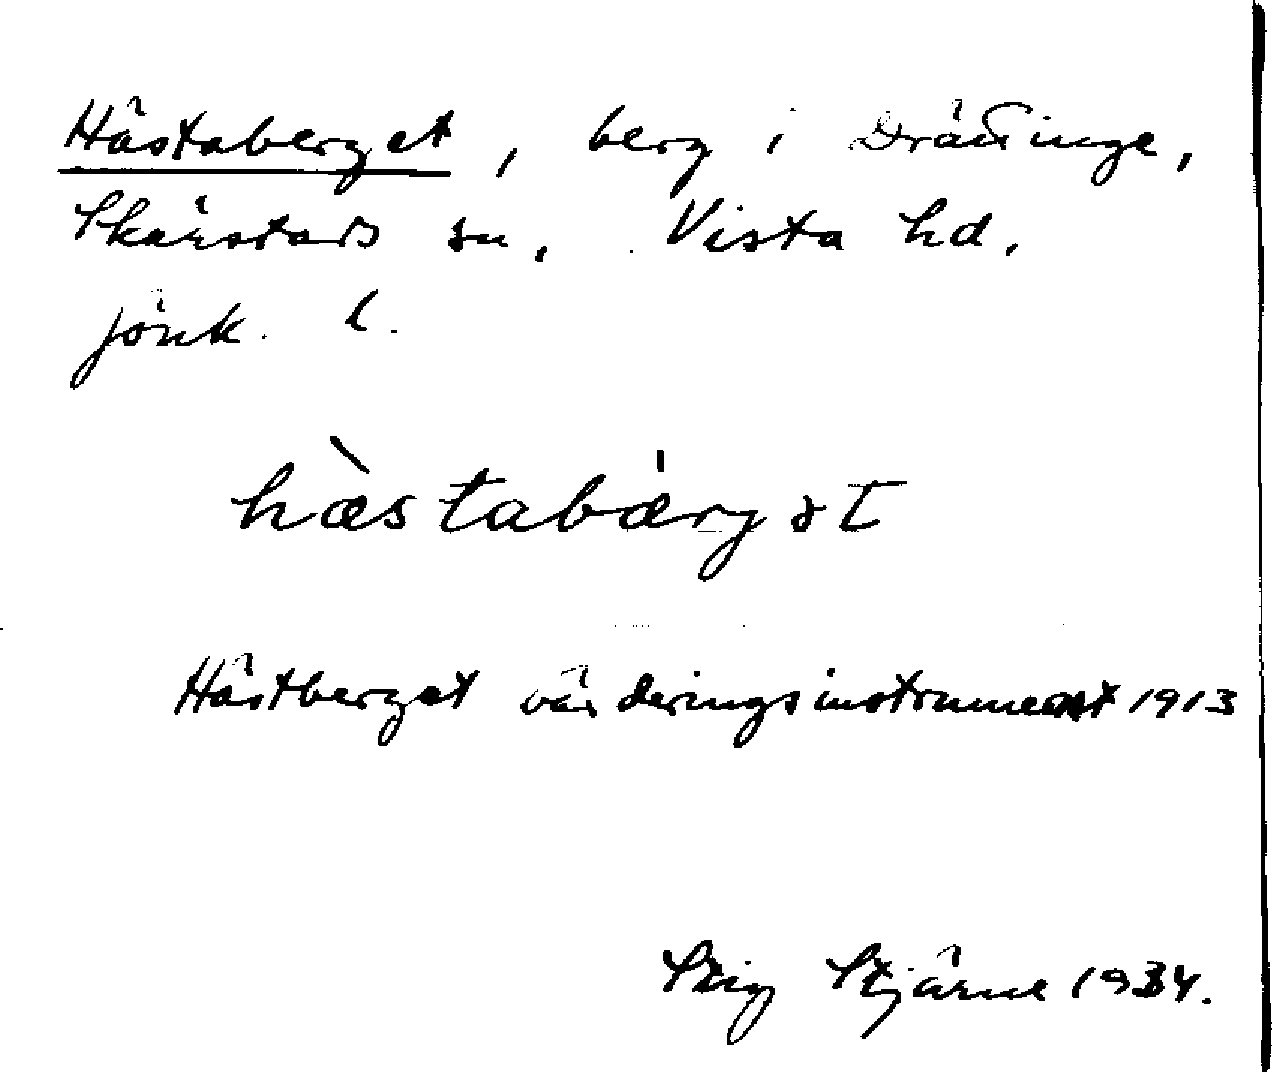 Hästaberget, berg i Drättinge,
Skärstads sn. Vista hd.
Jönk. l.
hæ̀stabæ̍rjət
Hästberget värderingsinstrument 1913
Stig Stjärne 1934.